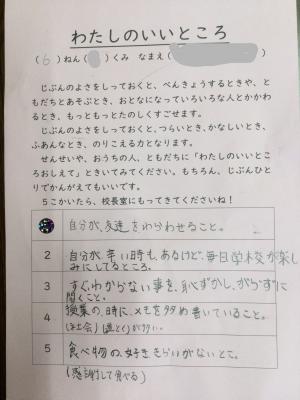 わたしのいいところ
(6)ねん( )くみ なまえ( )
じぶんのよさをしっておくと、べんきょうするときや、と
もだちとあそぶとき、おとなになっていろいろな人とかかわ
るとき、もっともっとたのしくすごせます。
じぶんのよさをしっておくと、つらいとき、かなしいとき、
ふあんなとき、のりこえる力となります。
せんせいや、おうちの人、ともだちに「わたしのいいとこ
ろおしえて」ときいてみてください。もちろん、じぶんひと
りでかんがえてもいいです。
5こかいたら、校長室にもってきてくださいね!
自分が、友達をわらわせること。
2 自分が、辛い時も、あるけど、毎日学校が楽し
みにしてるところ。
3 すぐわからない事を、恥ずかしがらずに
聞くこと。
4 授業の、時に、メモを多め書いていること。
(社会)(道とく)が多い。
5 食べ物の、好ききらいがないとこ。
(感謝して食べる)